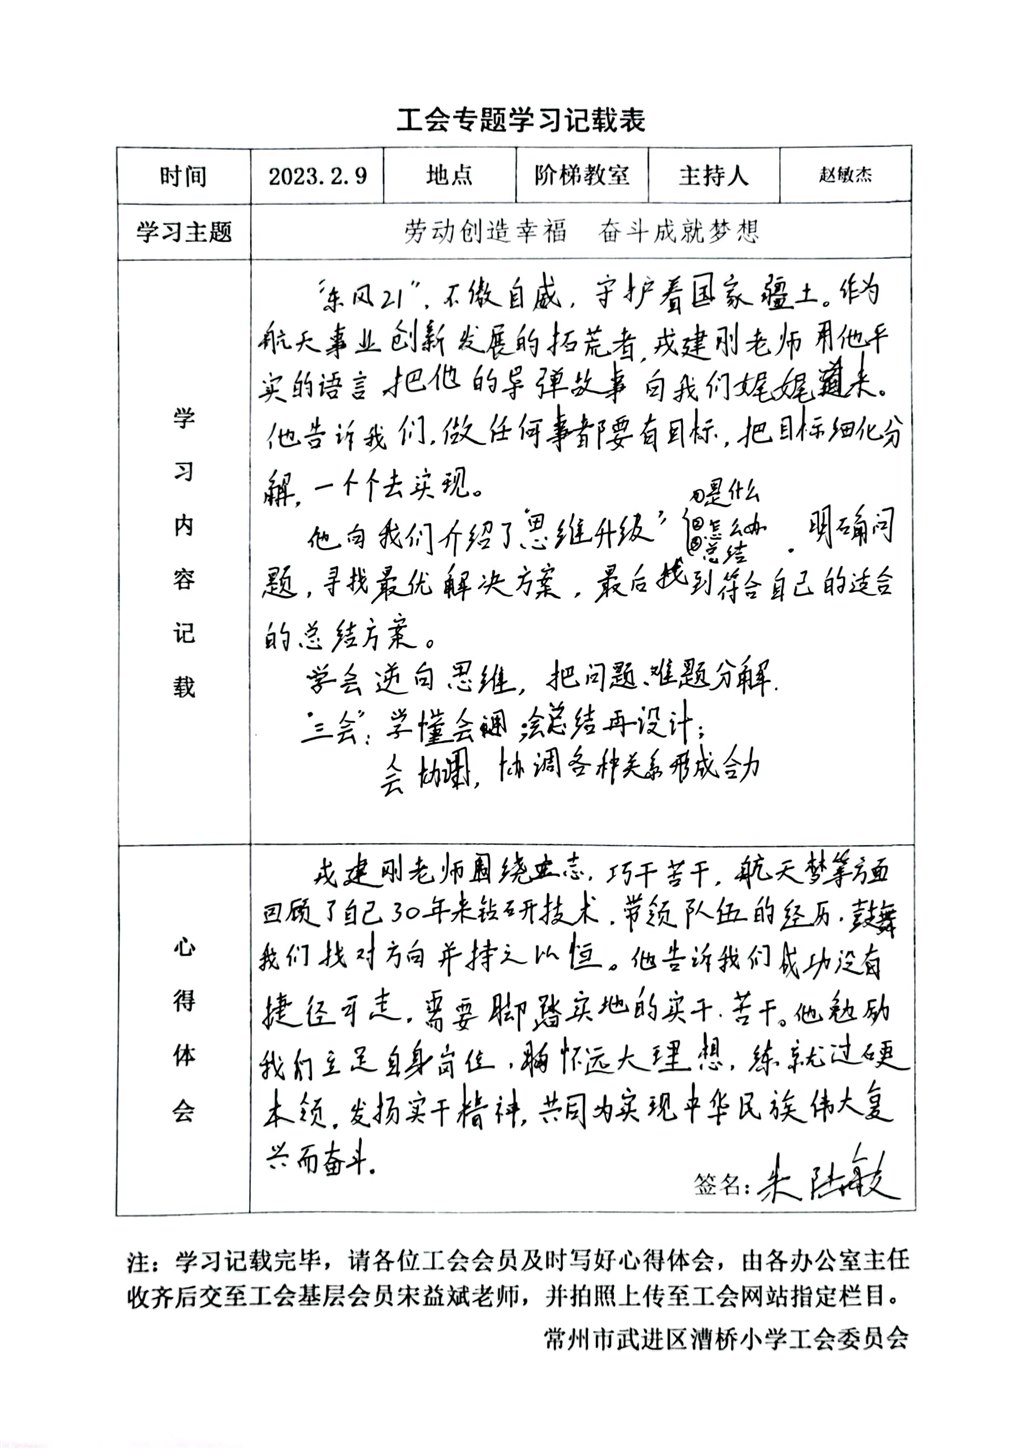 工会专题学习记载表
时间 2023.2.9 地点 阶梯教室 主持人 赵敏杰
学习主题 劳动创造幸福 奋斗成就梦想
学习内容记载
“东风21”,不傲自威,守护着国家疆土。作为
航天事业创新发展的拓荒者,戎建刚老师用他平
实的语言把他的导弹故事向我们娓娓道来。
他告诉我们,做任何事都要有目标,把目标细化分
解,一个个去实现。
他向我们介绍了“思维升级” ①是什么
②怎么办
③总结
. 明确问
题,寻找最优解决方案,最后找到符合自己的适合
的总结方案。
学会逆向思维,把问题、难题分解.
“三会”:学懂会通;会总结再设计;
会协调,协调各种关系形成合力
心得体会
戎建刚老师围绕立志,巧干苦干,航天梦等方面
回顾了自己30年来钻研技术,带领队伍的经历,鼓舞
我们找对方向并持之以恒。他告诉我们成功没有
捷径可走,需要脚踏实地的实干、苦干。他勉励
我们立足自身岗位,胸怀远大理想,练就过硬
本领,发扬实干精神,共同为实现中华民族伟大复
兴而奋斗.
签名:朱陆敏
注:学习记载完毕,请各位工会会员及时写好心得体会,由各办公室主任
收齐后交至工会基层会员宋益斌老师,并拍照上传至工会网站指定栏目。
常州市武进区漕桥小学工会委员会